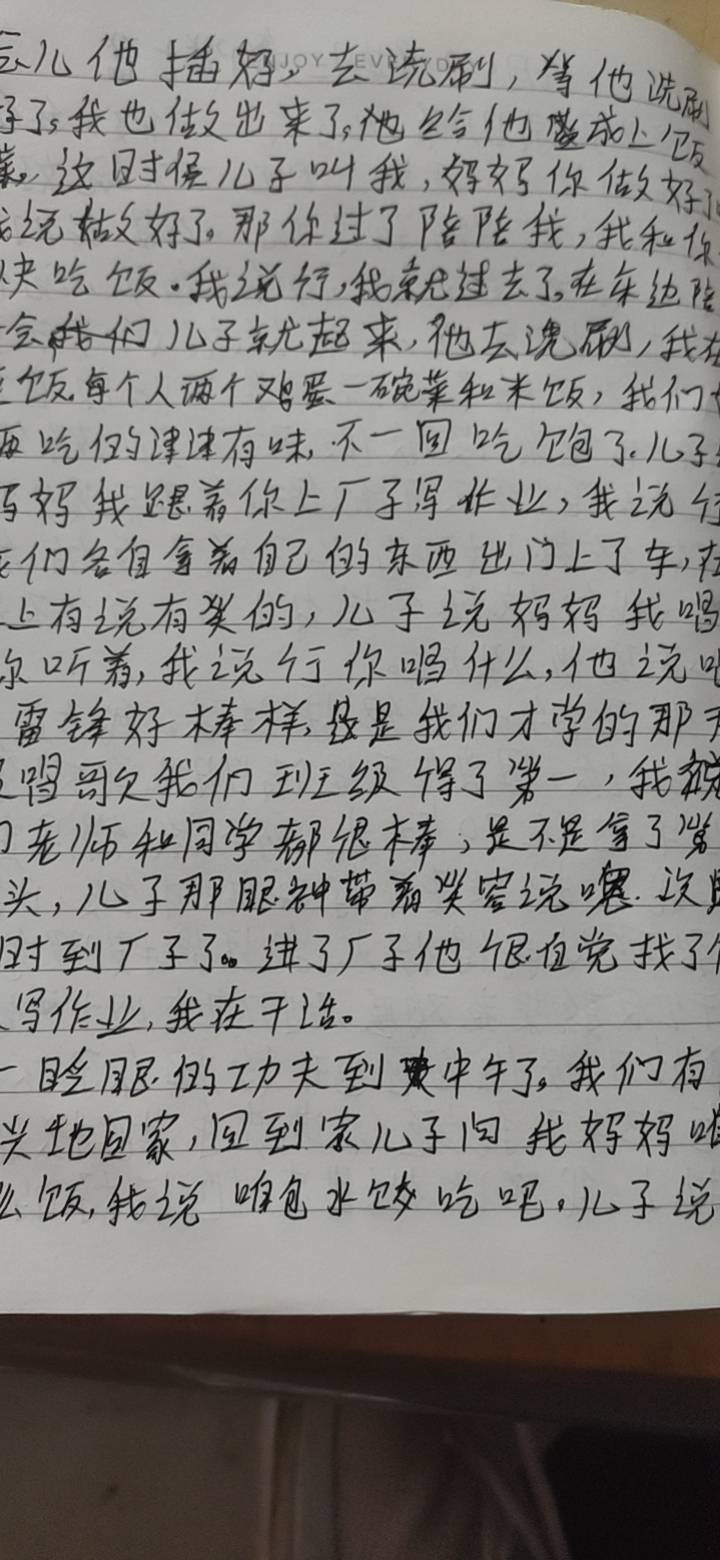 ENJOY EVERYDAY
会儿他插好,去洗刷,等他洗刷
好了,我也做出来了,他给他盛成上饭
菜。这时候儿子叫我,妈妈你做好了
我说做好了。那你过了陪陪我,我和你
快吃饭。我说行,我就过去了,在车边陪
会我们儿子就起来,他去洗刷,我在
饭,每个人两个鸡蛋一碗菜和米饭,我们
吃的津津有味,不一回吃饱了,儿子
妈妈我跟着你上厂子写作业,我说行
我们各自拿着自己的东西出门上了车,在
上有说有笑的,儿子说妈妈我唱
你听着,我说行你唱什么,他说唱
雷锋好棒样,这是我们才学的那天
唱歌我们班级得了第一,我
们老师和同学都很棒,是不是拿了第
头,儿子那眼神带着笑容说嗯.
时到厂子了。进了厂子他很自觉找了个
写作业,我在干活。
一眨眼的功夫到中午了,我们有
头地回家,回到家儿子问我妈妈咱
么饭,我说咱包水饺吃吧,儿子说